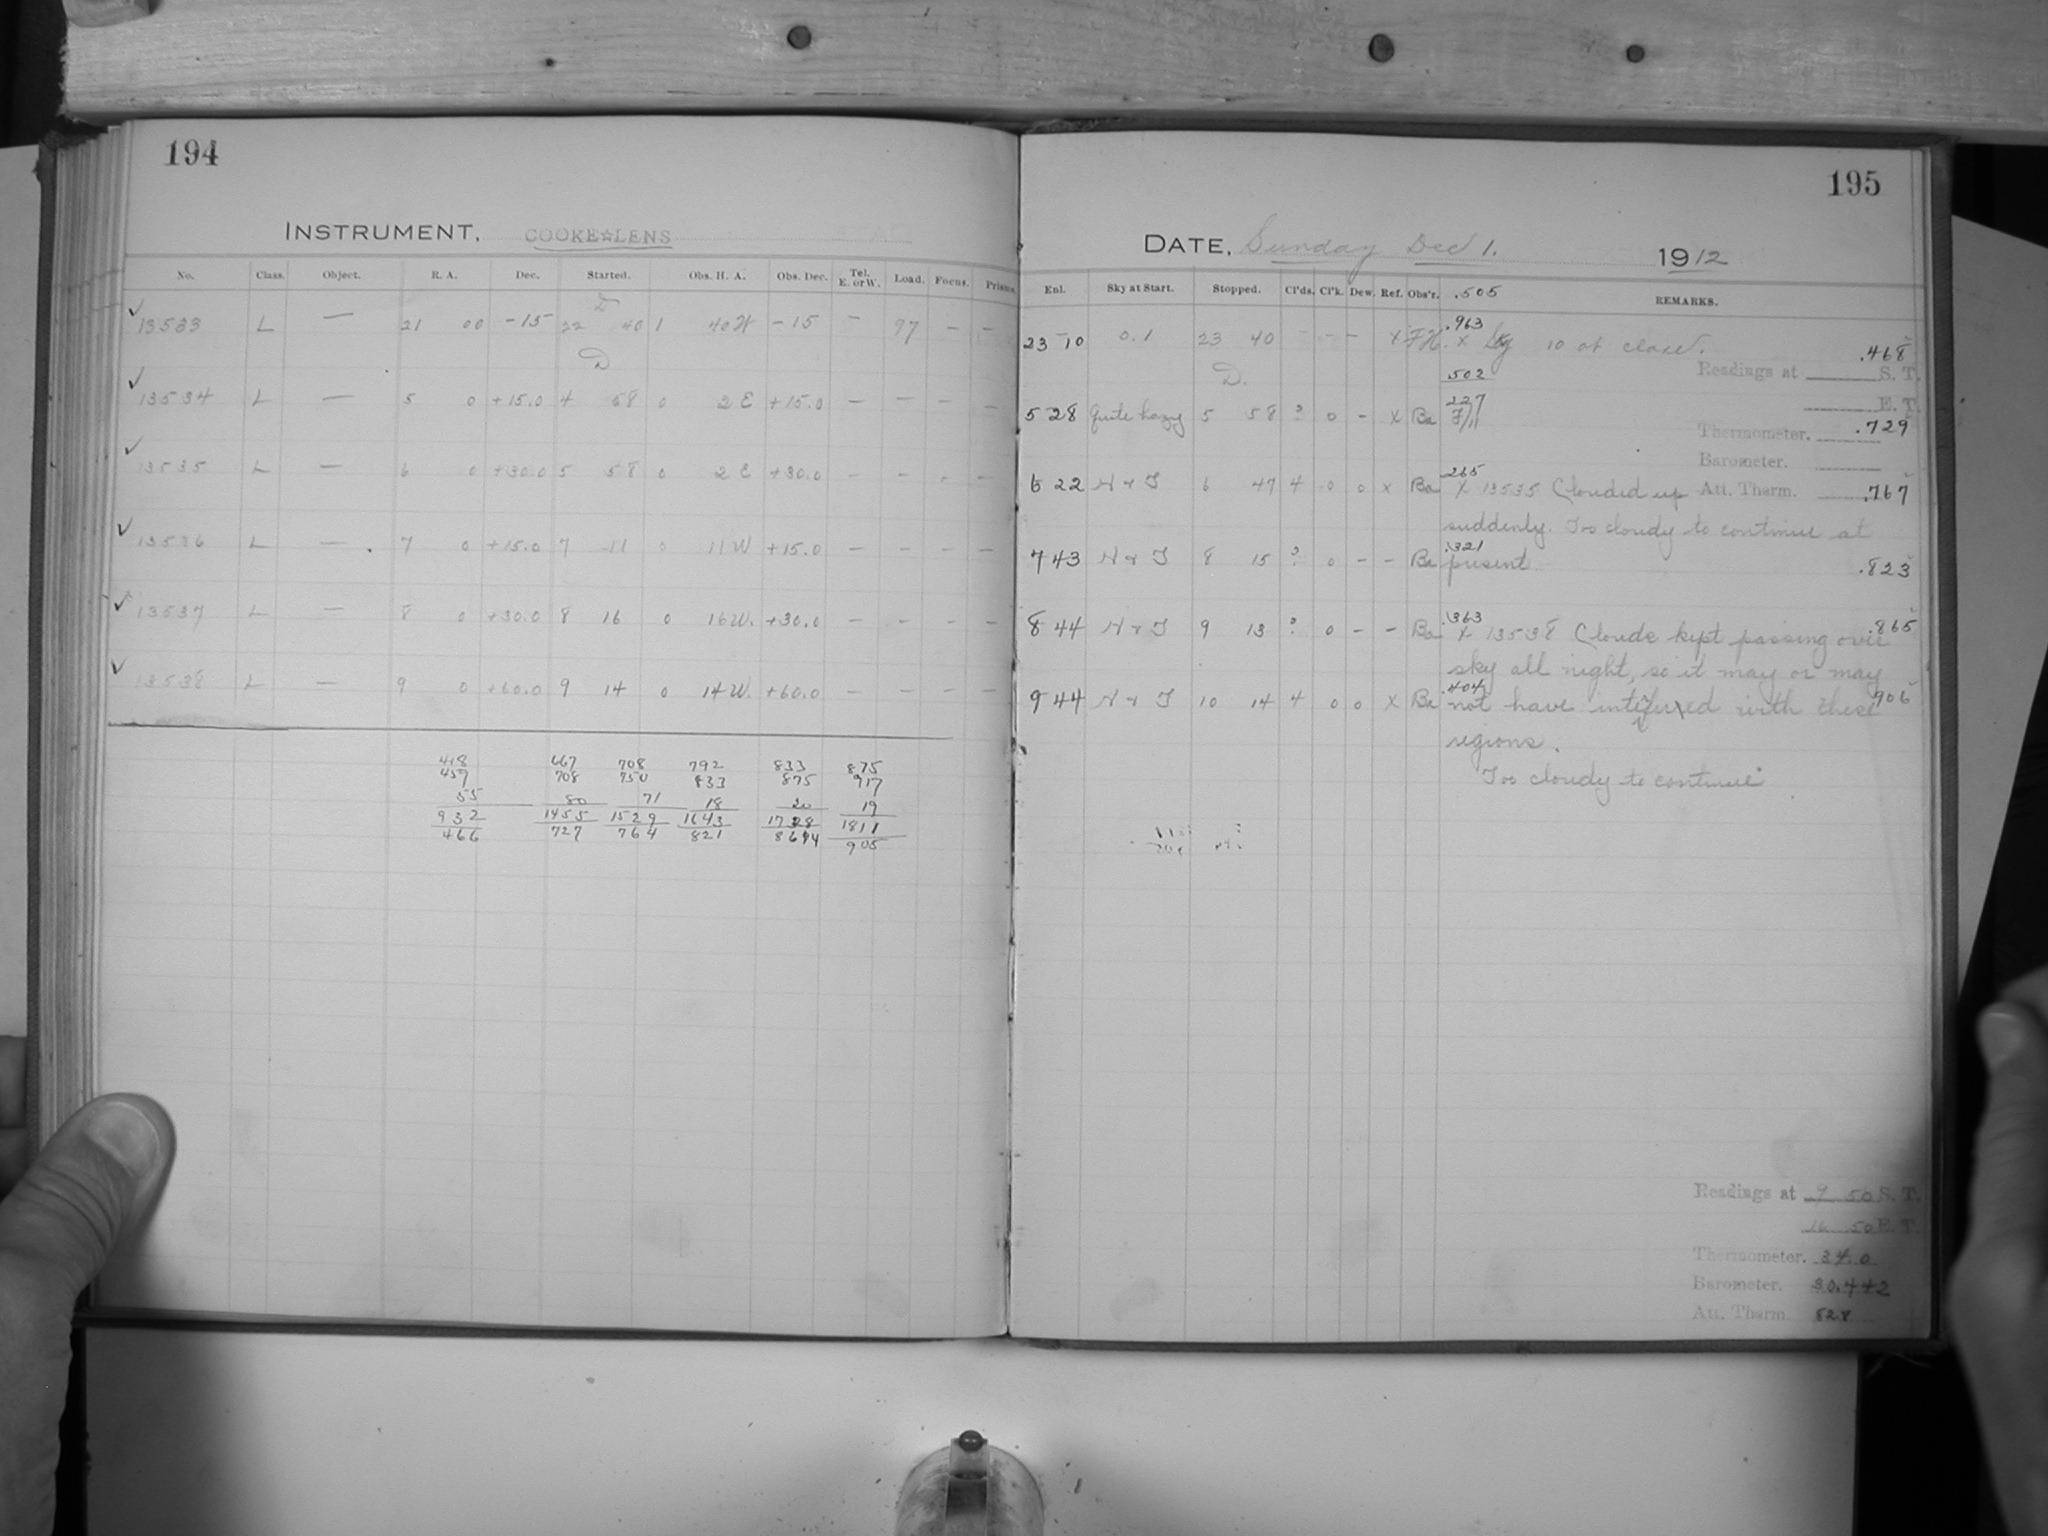 194
INSTRUMENT, COOKE☆LENS
No. Class. Object. R. A. Dec. Started. Obs. H. A. Obs. Dec. Tel. E. or W. Load. Focus. Prisms.
D
✓ 13533 L — 21 00 -15 22 40 1 40 W -15 — 97 — —
D
✓ 13534 L — 5 0 +15.0 4 58 0 2 E +15.0 — — — —
✓ 13535 L — 6 0 +30.0 5 58 0 2 E +30.0 — — - —
✓ 13536 L — 7 0 +15.0 7 11 0 11 W +15.0 — — — —
✓ 13537 L — 8 0 +30.0 8 16 0 16 W. +30.0 — — — —
✓ 13538 L — 9 0 +60.0 9 14 0 14 W. +60.0 — — — —
667 708 792 833 875
457 708 750 833 875 917
55 80 71 18 20 19
932 1455 1529 1643 1728 1811
466 727 764 821 905
195
DATE, Sunday Dec 1. 1912
Enl. Sky at Start. Stopped. Cl'ds. Cl'k. Dew. Ref. Obs'r. .505 REMARKS.
.963
23 10 0.1 23 40 - - — X 10 at close. .468
D. .502 Readings at S. T.
.227 E. T.
5 28 Quite hazy 5 58 ? 0 - X Ba F/11 .729
Thermometer.
Barometer.
.265
6 22 H & T 6 47 4 0 0 x Ba X 13535 Clouded up Att. Therm. .767
suddenly. Too cloudy to continue at
.321
7 43 H & T 8 15 ? 0 - - Ba present .823
.363
8 44 H & T 9 13 ? 0 - - Ba X 13538 Clouds kept passing over .865
sky all night, so it may or may
.404
9 44 H & T 10 14 4 0 0 X Ba not have interfered with these .906
regions.
Too cloudy to continue
Readings at 9 50 S. T.
16 50 E. T.
Thermometer. 34.0
Barometer. 30.442
Att. Therm. 52.8